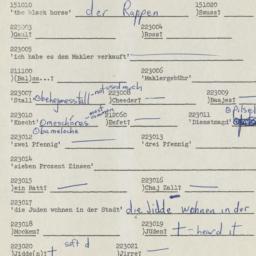 151010 151020
'the black horse' der Rappen )Smuss?
223003 223004
)Gaul? )Ross?
223005
'ich habe es dem Makler verkauft'
211100 223006
)(Bal... ? 'Maklergebühr'
not used much
223007 223008 223009
'Stall' )Cheeder?
223010 223011
'Knecht' )Dienstmagd'
223012 223013
'zwei Pfennig' 'drei Pfennig'
223014
'sieben Prozent Zinsen'
223015 223016
)ein Batt? )Chaj Zall?
223017
'die Juden wohnen in der Stadt' die Jidde wohnen in der
223018 223019
)Mocken? )Juden? + - heard it
223020 said 223021
)Jidde(n)? + )Jirre?